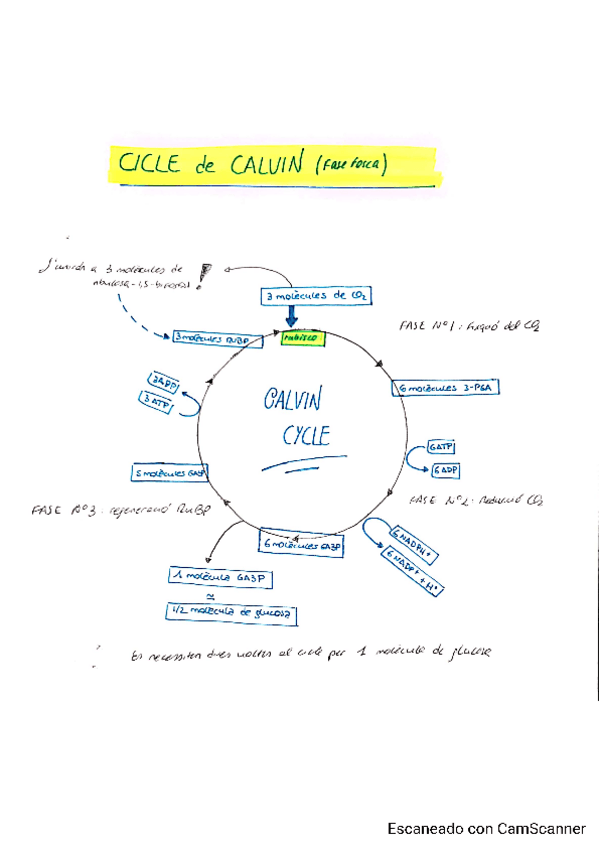 CICLE de CALVIN (Fase fosca)
S'uneix a 3 molècules de
ribulosa-1,5-bifosfat !
3 molècules de CO₂
FASE Nº1: fixació del CO₂
3 molècules RuBP
rubisco
6 molècules 3-PGA
3ADP
3 ATP
CALVIN
CYCLE
6ATP
6 ADP
5 molècules GA3P
FASE Nº2: Reducció CO₂
FASE Nº3: regeneració RuBP
6 NADPH+
6 NADP+ + H+
6 molècules GA3P
1 molècula GA3P
≃
1/2 molècula de glucosa
Es necessiten dues voltes al cicle per 1 molècula de glucosa
Escaneado con CamScanner